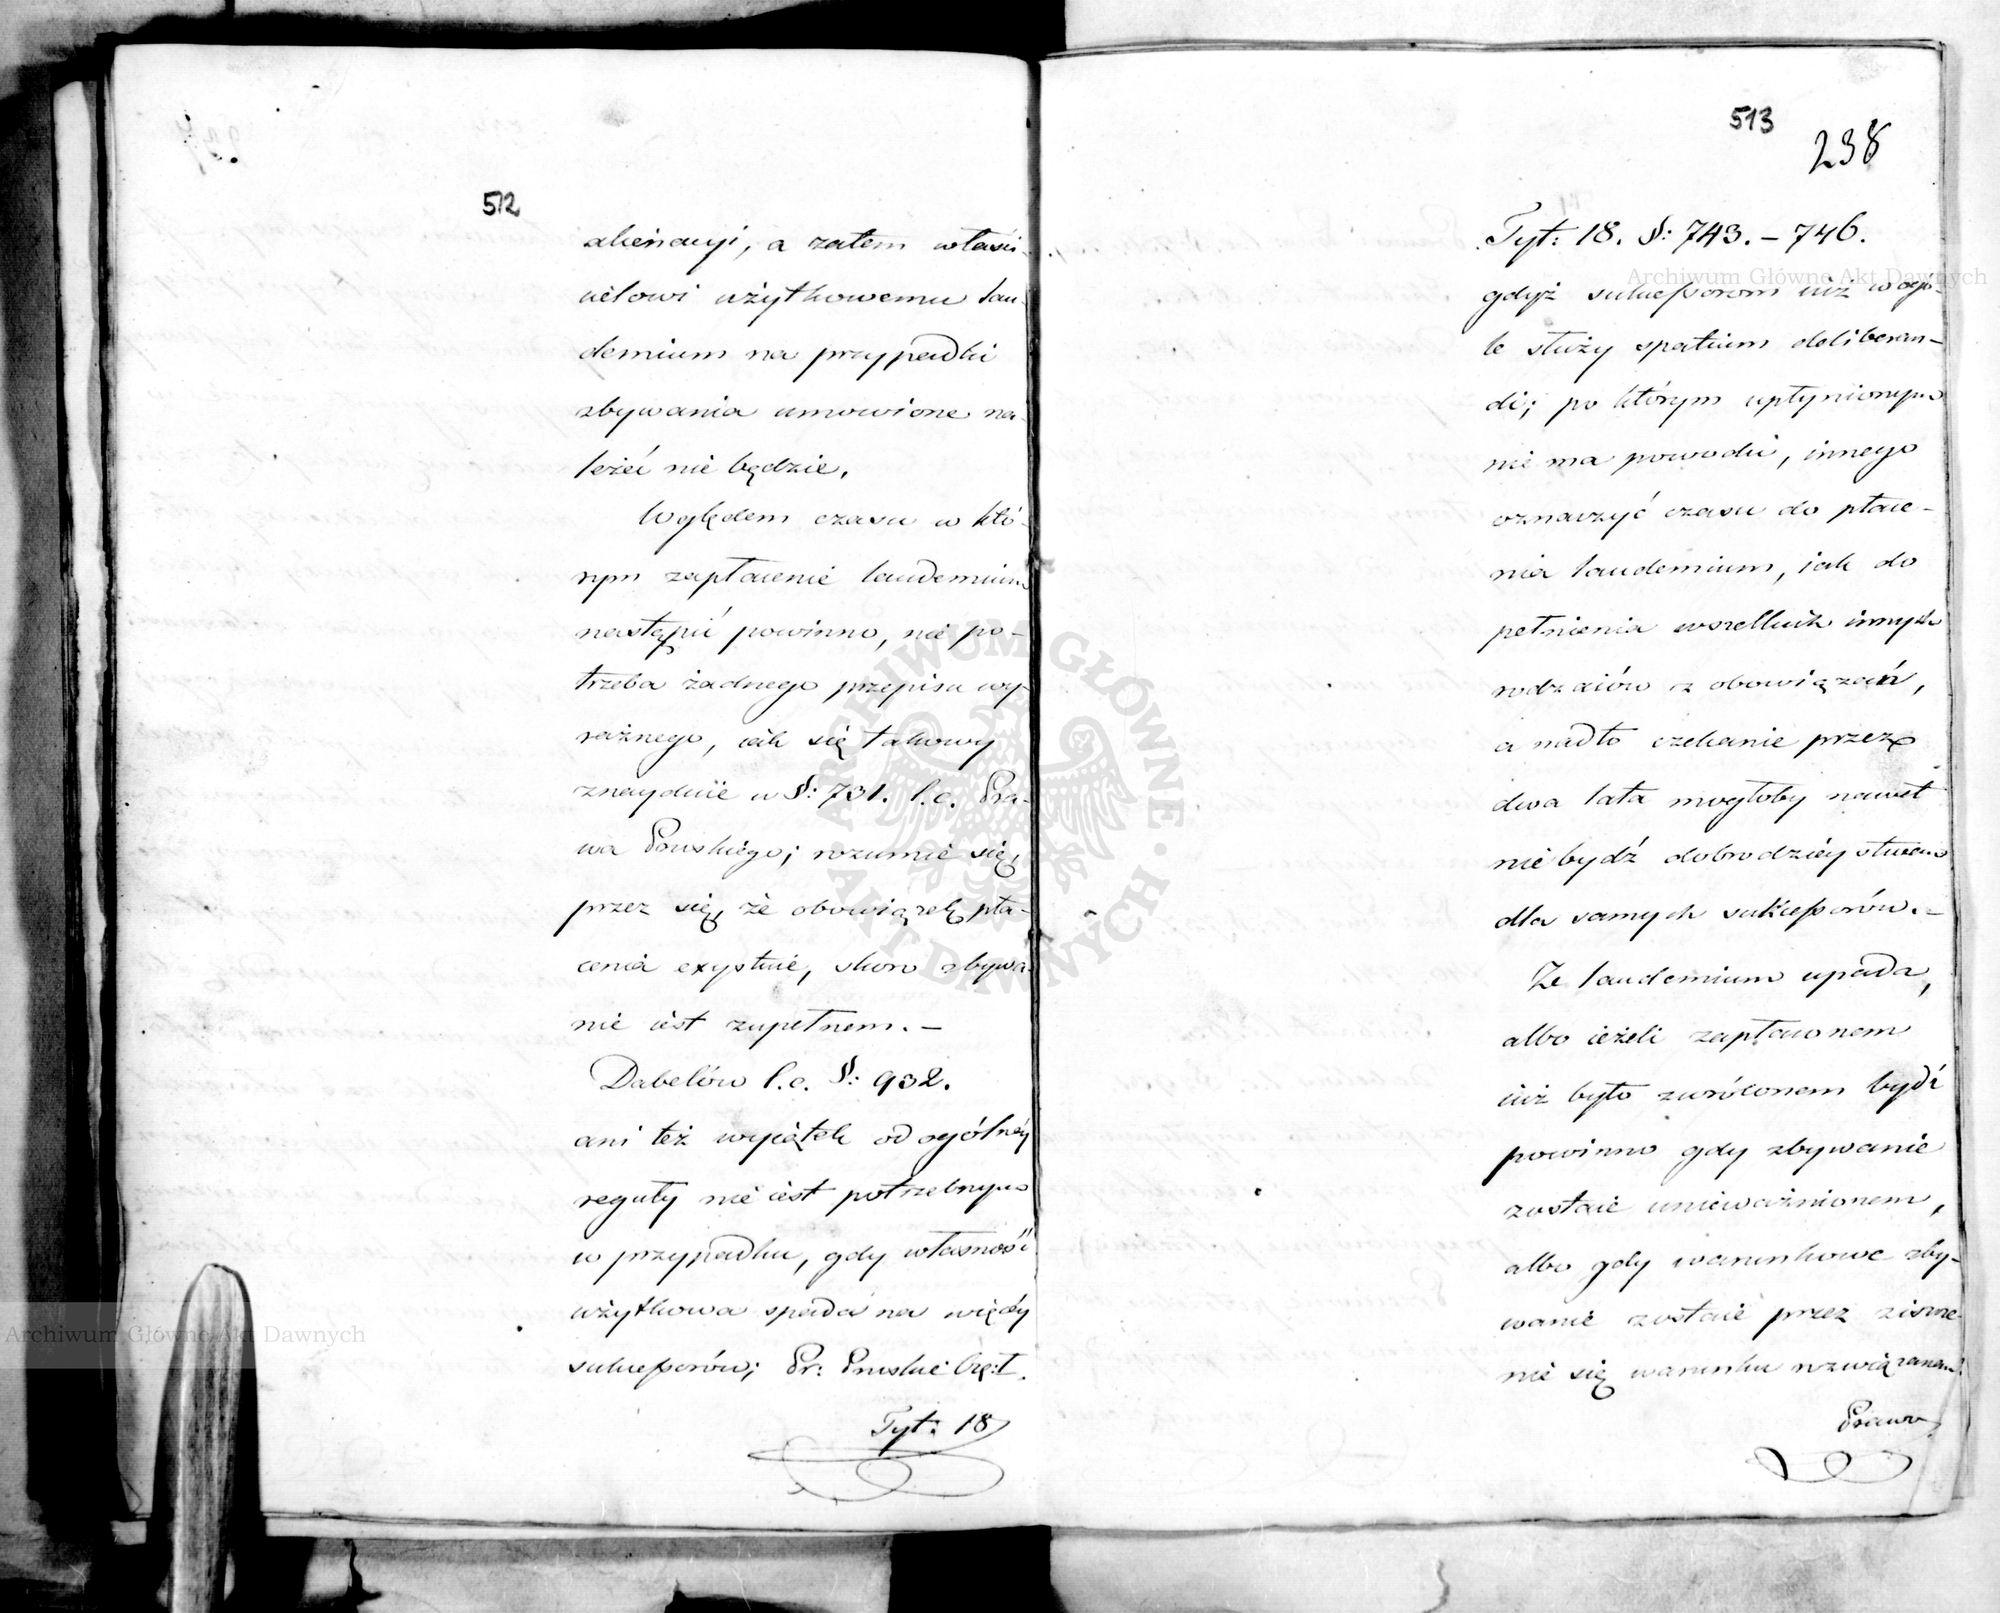 512
alienacyi, a zatem właści-
cielowi użytkowemu lau-
demium na przypadki
zbywania umowione na-
leżeć nie będzie.
Względem czasu w któ-
rym zapłacenie laudemium
nastąpić powinno, nie po-
trzeba żadnego przepisu wy-
raźnego, iak się takowy
znayduie w §: 731. l.c. Pra-
wa Pruskiego; rozumie się,
przez się, że obowiązek pła-
cenia exystuie, skoro zbywa-
nie iest zupełnem. —
Dabelów l.c. §: 932.
ani też wyiątek od ogólnéy
reguły nie iest potrzebnym
w przypadku, gdy własność
użytkowa spada na więcéy
sukcessorów; Pr: Pruskie Czę: I.
Tyt: 18
513
238
Tyt: 18. §: 743. – 746.
gdyż sukcessorom iuż w ogó-
le służy spatium deliberan-
di; po którym upłynionym
nie ma powodu, innego
oznaczyć czasu do płace-
nia laudemium, iak do
pełnienia wszelkich innych
rodzaiów zobowiązań,
a nadto czekanie przez
dwa lata mogłoby nawet
nie bydź dobrodzieystwem
dla samych sukcessorów. —
Że laudemium upada,
albo ieżeli zapłaconem
iuż było zwróconem bydź
powinno gdy zbywanie
zostaie unieważnionem,
albo gdy warunkowe zby-
wanie zostaie przez ziszcze-
nie się warunku rozwiązanem.
Prawo
Archiwum Główne Akt Dawnych
Archiwum Główne Akt Dawnych
ARCHIWUM GŁÓWNE · AKT DAWNYCH ·